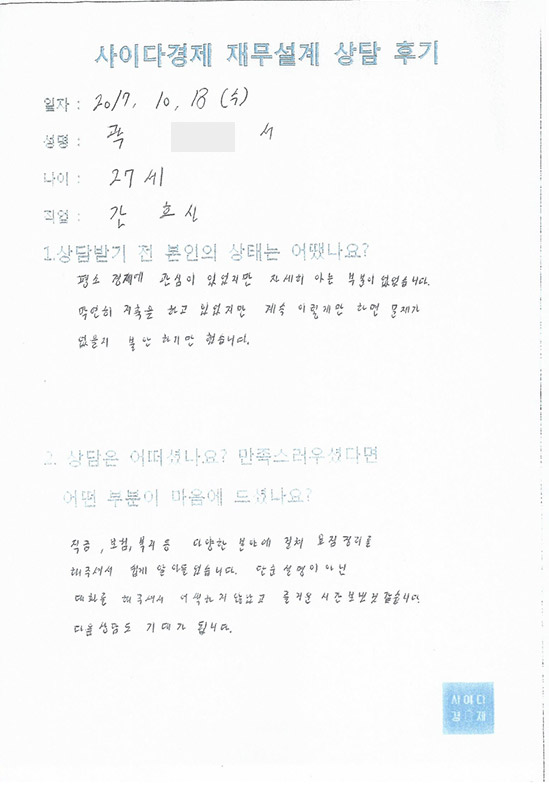 사이다경제 재무설계 상담 후기
일자 : 2017. 10. 18 (수)
성명 : 곽 서
나이 : 27세
직업 : 간호사
1.상담받기 전 본인의 상태는 어땠나요?
평소 경제에 관심이 있었지만 자세히 아는 부분이 없었습니다.
막연히 저축을 하고 있었지만 계속 이렇게만 하면 문제가
없을지 불안하기만 했습니다.
2. 상담은 어떠셨나요? 만족스러우셨다면
어떤 부분이 마음에 드셨나요?
적금, 보험, 복리 등 다양한 분야에 걸쳐 요점정리를
해주셔서 쉽게 알아들었습니다. 단순 설명이 아닌
대화를 해주셔서 어색하지 않았고 즐거운 시간 보낸것 같습니다.
다음 상담도 기대가 됩니다.
사이다
경제